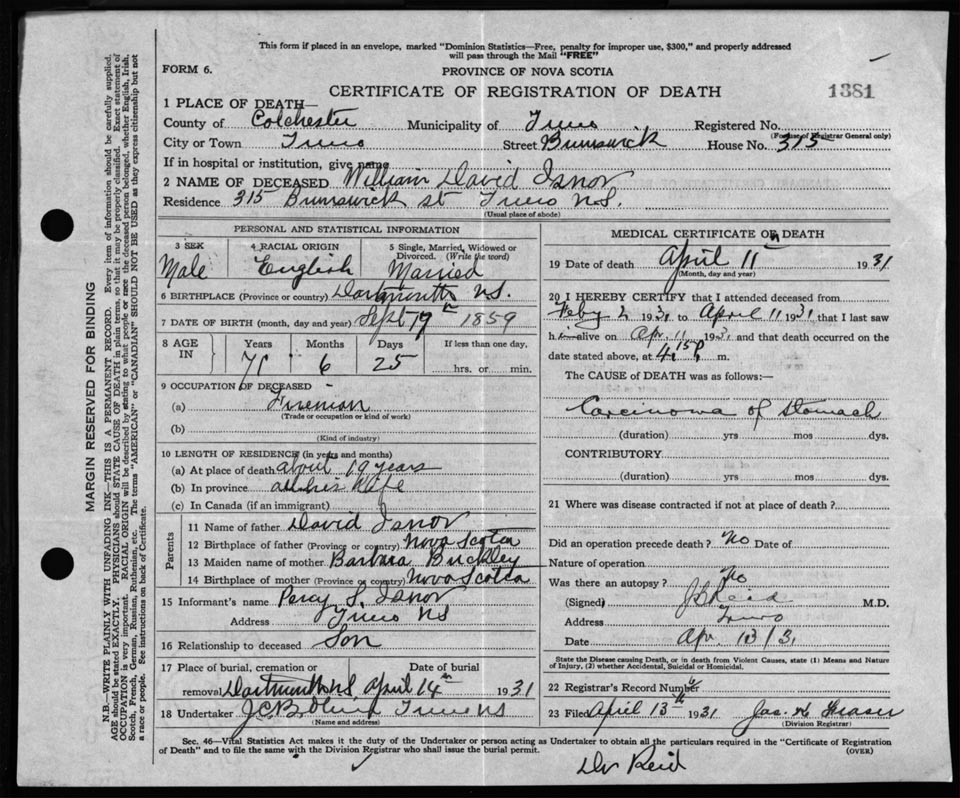 This form if placed in an envelope, marked "Dominion Statistics—Free, penalty for improper use, $300," and properly addressed
will pass through the Mail "FREE"
FORM 6.
PROVINCE OF NOVA SCOTIA
CERTIFICATE OF REGISTRATION OF DEATH
1381
1 PLACE OF DEATH—
County of Colchester Municipality of Truro Registered No.
(For use of Registrar General only)
City or Town Truro Street Brunswick House No. 315
If in hospital or institution, give name
2 NAME OF DECEASED William David Isnor
Residence 315 Brunswick st Truro N.S.
(Usual place of abode)
PERSONAL AND STATISTICAL INFORMATION
3 SEX 4 RACIAL ORIGIN 5 Single, Married, Widowed or Divorced. (Write the word)
Male English Married
6 BIRTHPLACE (Province or country) Dartmouth N.S.
7 DATE OF BIRTH (month, day and year) Sept 17th 1859
8 AGE IN Years Months Days If less than one day,
71 6 25 hrs. or min.
9 OCCUPATION OF DECEASED
(a) Fireman
(Trade or occupation or kind of work)
(b)
(Kind of industry)
10 LENGTH OF RESIDENCE (in years and months)
(a) At place of death about 19 years
(b) In province all his life
(c) In Canada (if an immigrant)
Parents
11 Name of father David Isnor
12 Birthplace of father (Province or country) Nova Scotia
13 Maiden name of mother Barbra Buckley
14 Birthplace of mother (Province or country) Nova Scotia
15 Informant's name Percy S. Isnor
Address Truro NS
16 Relationship to deceased Son
17 Place of burial, cremation or removal Date of burial
Dartmouth NS. April 14th 1931
18 Undertaker J.C.B. Truro NS
(Name and address)
MEDICAL CERTIFICATE OF DEATH
19 Date of death April 11th 1931
(Month, day and year)
20 I HEREBY CERTIFY that I attended deceased from
Feby 2 1931 to April 11 1931 that I last saw
him alive on Apr. 11 1931 and that death occurred on the
date stated above, at 4.15 P. m.
The CAUSE of DEATH was as follows:—
Carcinoma of Stomach
(duration) yrs mos dys.
CONTRIBUTORY
(duration) yrs mos dys.
21 Where was disease contracted if not at place of death?
Did an operation precede death? No Date of
Nature of operation
Was there an autopsy? No
(Signed) J B Reid M.D.
Address Truro
Date Apr. 13/31
State the Disease causing Death, or in death from Violent Causes, state (1) Means and Nature
of Injury, (2) whether Accidental, Suicidal or Homicidal.
22 Registrar's Record Number
23 Filed April 13th 1931 Jas. Fraser
(Division Registrar)
Sec. 46—Vital Statistics Act makes it the duty of the Undertaker or person acting as Undertaker to obtain all the particulars required in the "Certificate of Registration
of Death" and to file the same with the Division Registrar who shall issue the burial permit. (OVER)
Dr Reid
MARGIN RESERVED FOR BINDING
N.B.—WRITE PLAINLY WITH UNFADING INK—THIS IS A PERMANENT RECORD. Every item of information should be carefully supplied.
AGE should be stated EXACTLY. PHYSICIANS should STATE CAUSE OF DEATH in plain terms, so that it may be properly classified. Exact statement of
OCCUPATION is very important. RACIAL ORIGIN will be described by stating to what people or race the deceased person belonged, whether English, Irish,
Scotch, French, German, Russian, Ruthenian, etc. The terms "AMERICAN" or "CANADIAN" SHOULD NOT BE USED as they express citizenship but not
a race or people. See instructions on back of Certificate.